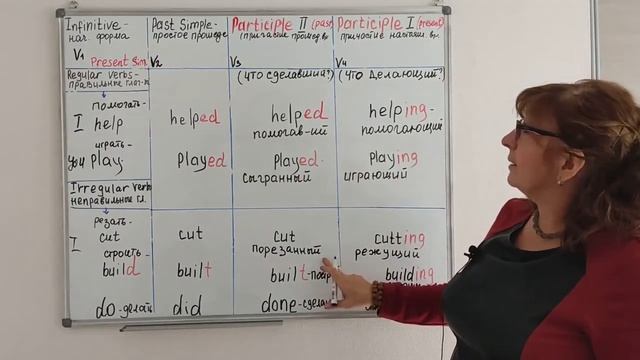 Infinitive-
нач. форма
V1 Present Sim.
Past Simple-
простое прошедш.
V2
Participle II (past)
(причастие прошед. вр.
V3
Participle I (present)
причастие настоящ. вр.
V4
Regular verbs-
правильные глаг-лы
(что сделавший?)
(что делающий?)
помогать-
I help
helped
helped
помогав-ий
helping-
помогающий
играть-
you play.
played
played.
сыгранный
playing
играющий
Irregular verbs
неправильные гл.
резать-
I cut
cut
cut
порезанный
cutting
режущий
строить-
build
built
built-
building
do-делать
did
done-